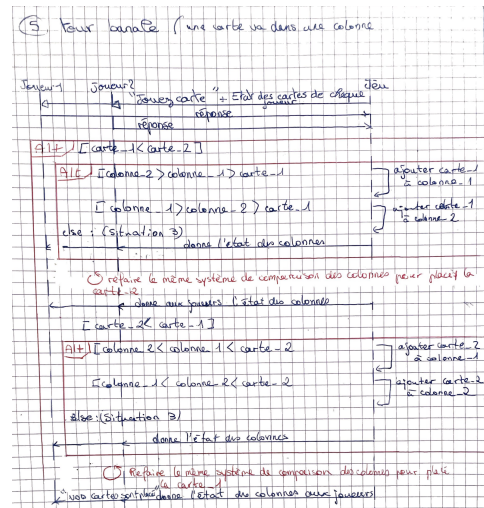 5 Tour banale (une carte va dans une colonne
Joueur1 joueur2 Jeu
"Jouez carte" + Etat des cartes de chaque
joueur
réponse
réponse
Alt [carte_1<carte_2]
Alt [colonne_2>colonne_1>carte_1 ajouter carte_1
à colonne_1
[colonne_1>colonne_2>carte_1 ajouter carte_1
à colonne_2
else : (Situation 3)
donne l'état des colonnes
refaire le même système de comparaison des colonnes pour placer la
carte_2
donne aux joueurs l'état des colonnes
[carte_2< carte_1]
Alt [colonne_2< colonne_1< carte_2 ajouter carte_2
à colonne_1
[colonne_1< colonne_2< carte_2 ajouter carte_2
à colonne_2
else:(Situation 3)
donne l'état des colonnes
Refaire le même système de comparaison des colonnes pour
la carte_1
"vos cartes sont placé" donne l'état des colonnes aux joueurs